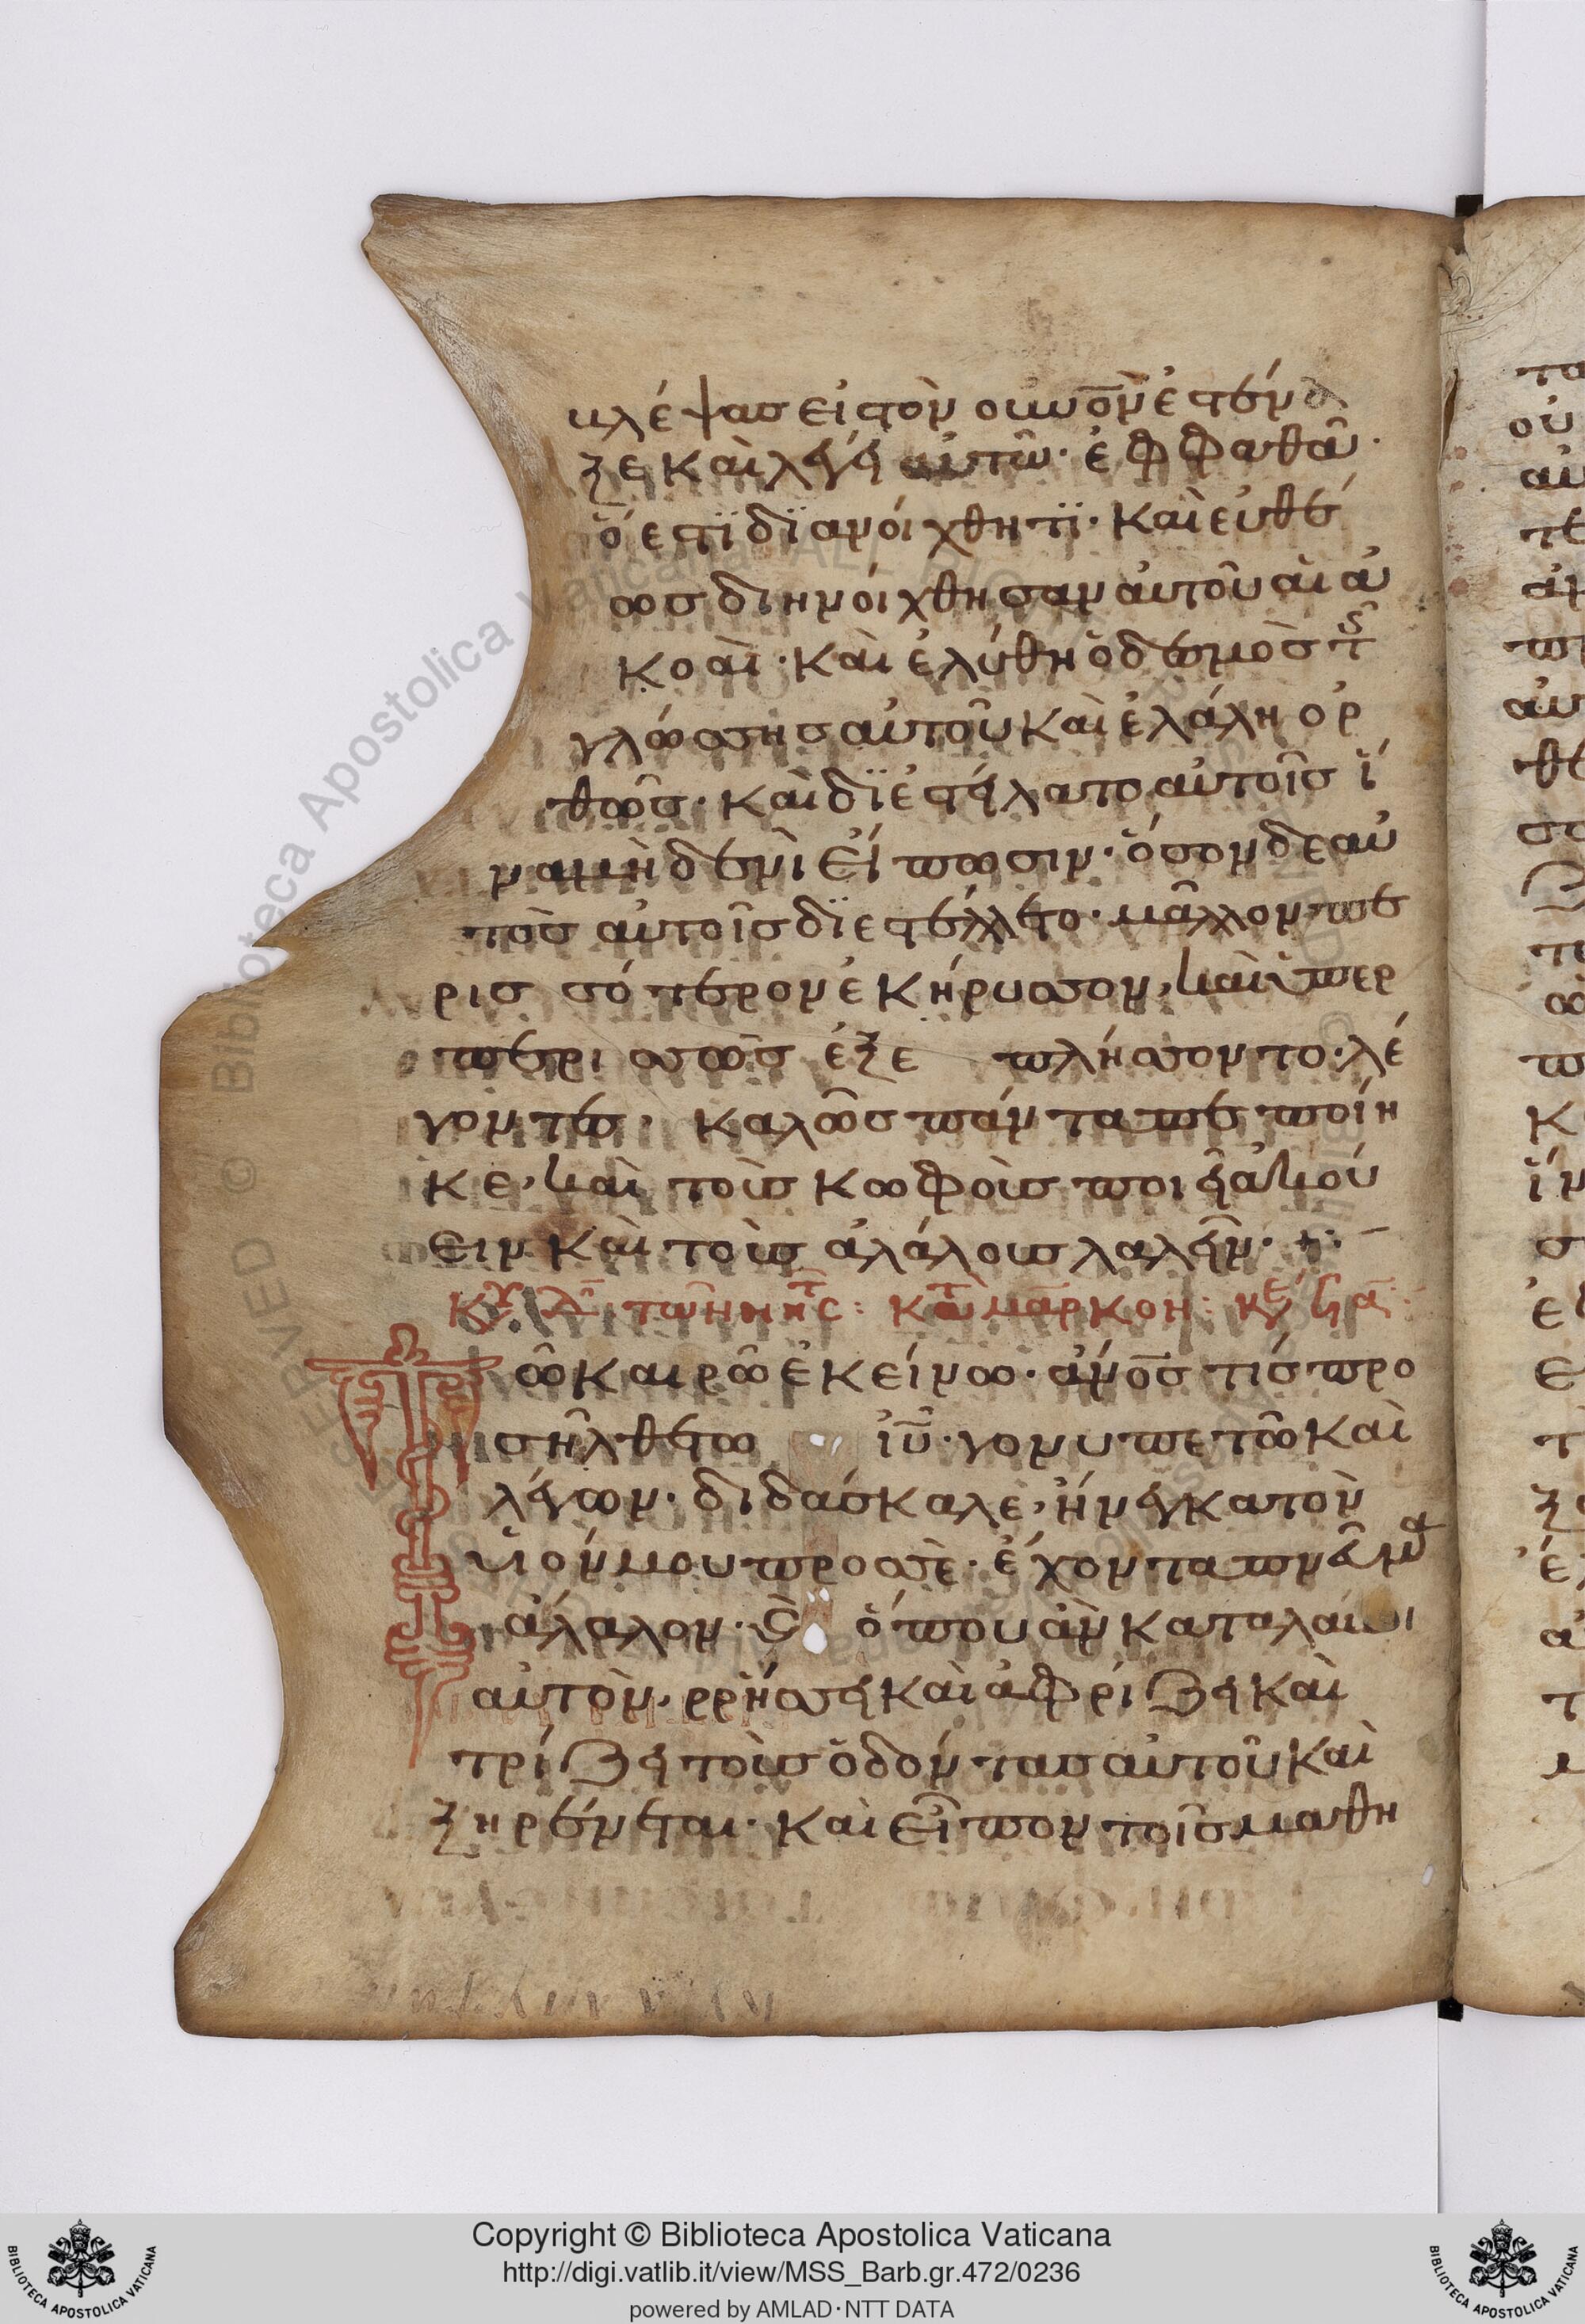 κλέψας εἰς τὸν οὐνον ἐστένα
ξε καὶ λέγει αὐτῶ· ἐφφαθᾶ·
ὅ ἐστϊ δϊανοίχθητϊ· καὶ εὐθέ
ως διηνοίχθησαν αὐτοῦ αἱ ἀ
κοαὶ· καὶ ἐλύθη ὁ δεσμὸς τῆς
γλώσσης αὐτοῦ καὶ ἐλάλη ὀρ
θῶς· καὶ δϊεστείλατο αὐτοῖς ἵ
να μὴδενὶ εἴπωσιν· ὅσον δε αὐ
τὸς αὐτοῖς δϊεστέλλετο· μᾶλλον πε
ρισσότερον ἐκήρυσσον, καὶ ὑπερ
περισσῶς ἐξε πλήσσοντο· λέ
γοντες· καλῶς πάντα πεποίη
κε, καὶ τοὺς κωφοὺς ποιεῖ ἀκού
ειν καὶ τοὺς ἀλάλους λαλεῖν· +·
τῶν νηστ: κτ μάρκον:
Τῶ καιρῶ ἐκείνω· ἄνος τίς προ
σῆλθε τω ἰῦ· γονυπετῶ καὶ
λέγων· διδάσκαλε, ἤνεγκα τὸν
υἱόν μου προσσὲ· ἔχοντα πνεῦμα
ἄλαλον· ὅπου ἂν καταλάβοι
αὐτὸν, ρρήσσει καὶ ἀφρίζει καὶ
τρίζει τοὺς ὁδόντας αὐτοῦ καὶ
ξηρένεται· καὶ εἶπον τοῖς μαθη
Copyright © Biblioteca Apostolica Vaticana
http://digi.vatlib.it/view/MSS_Barb.gr.472/0236
powered by AMLAD·NTT DATA
BIBLIOTECA APOSTOLICA VATICANA
BIBLIOTECA APOSTOLICA VATICANA